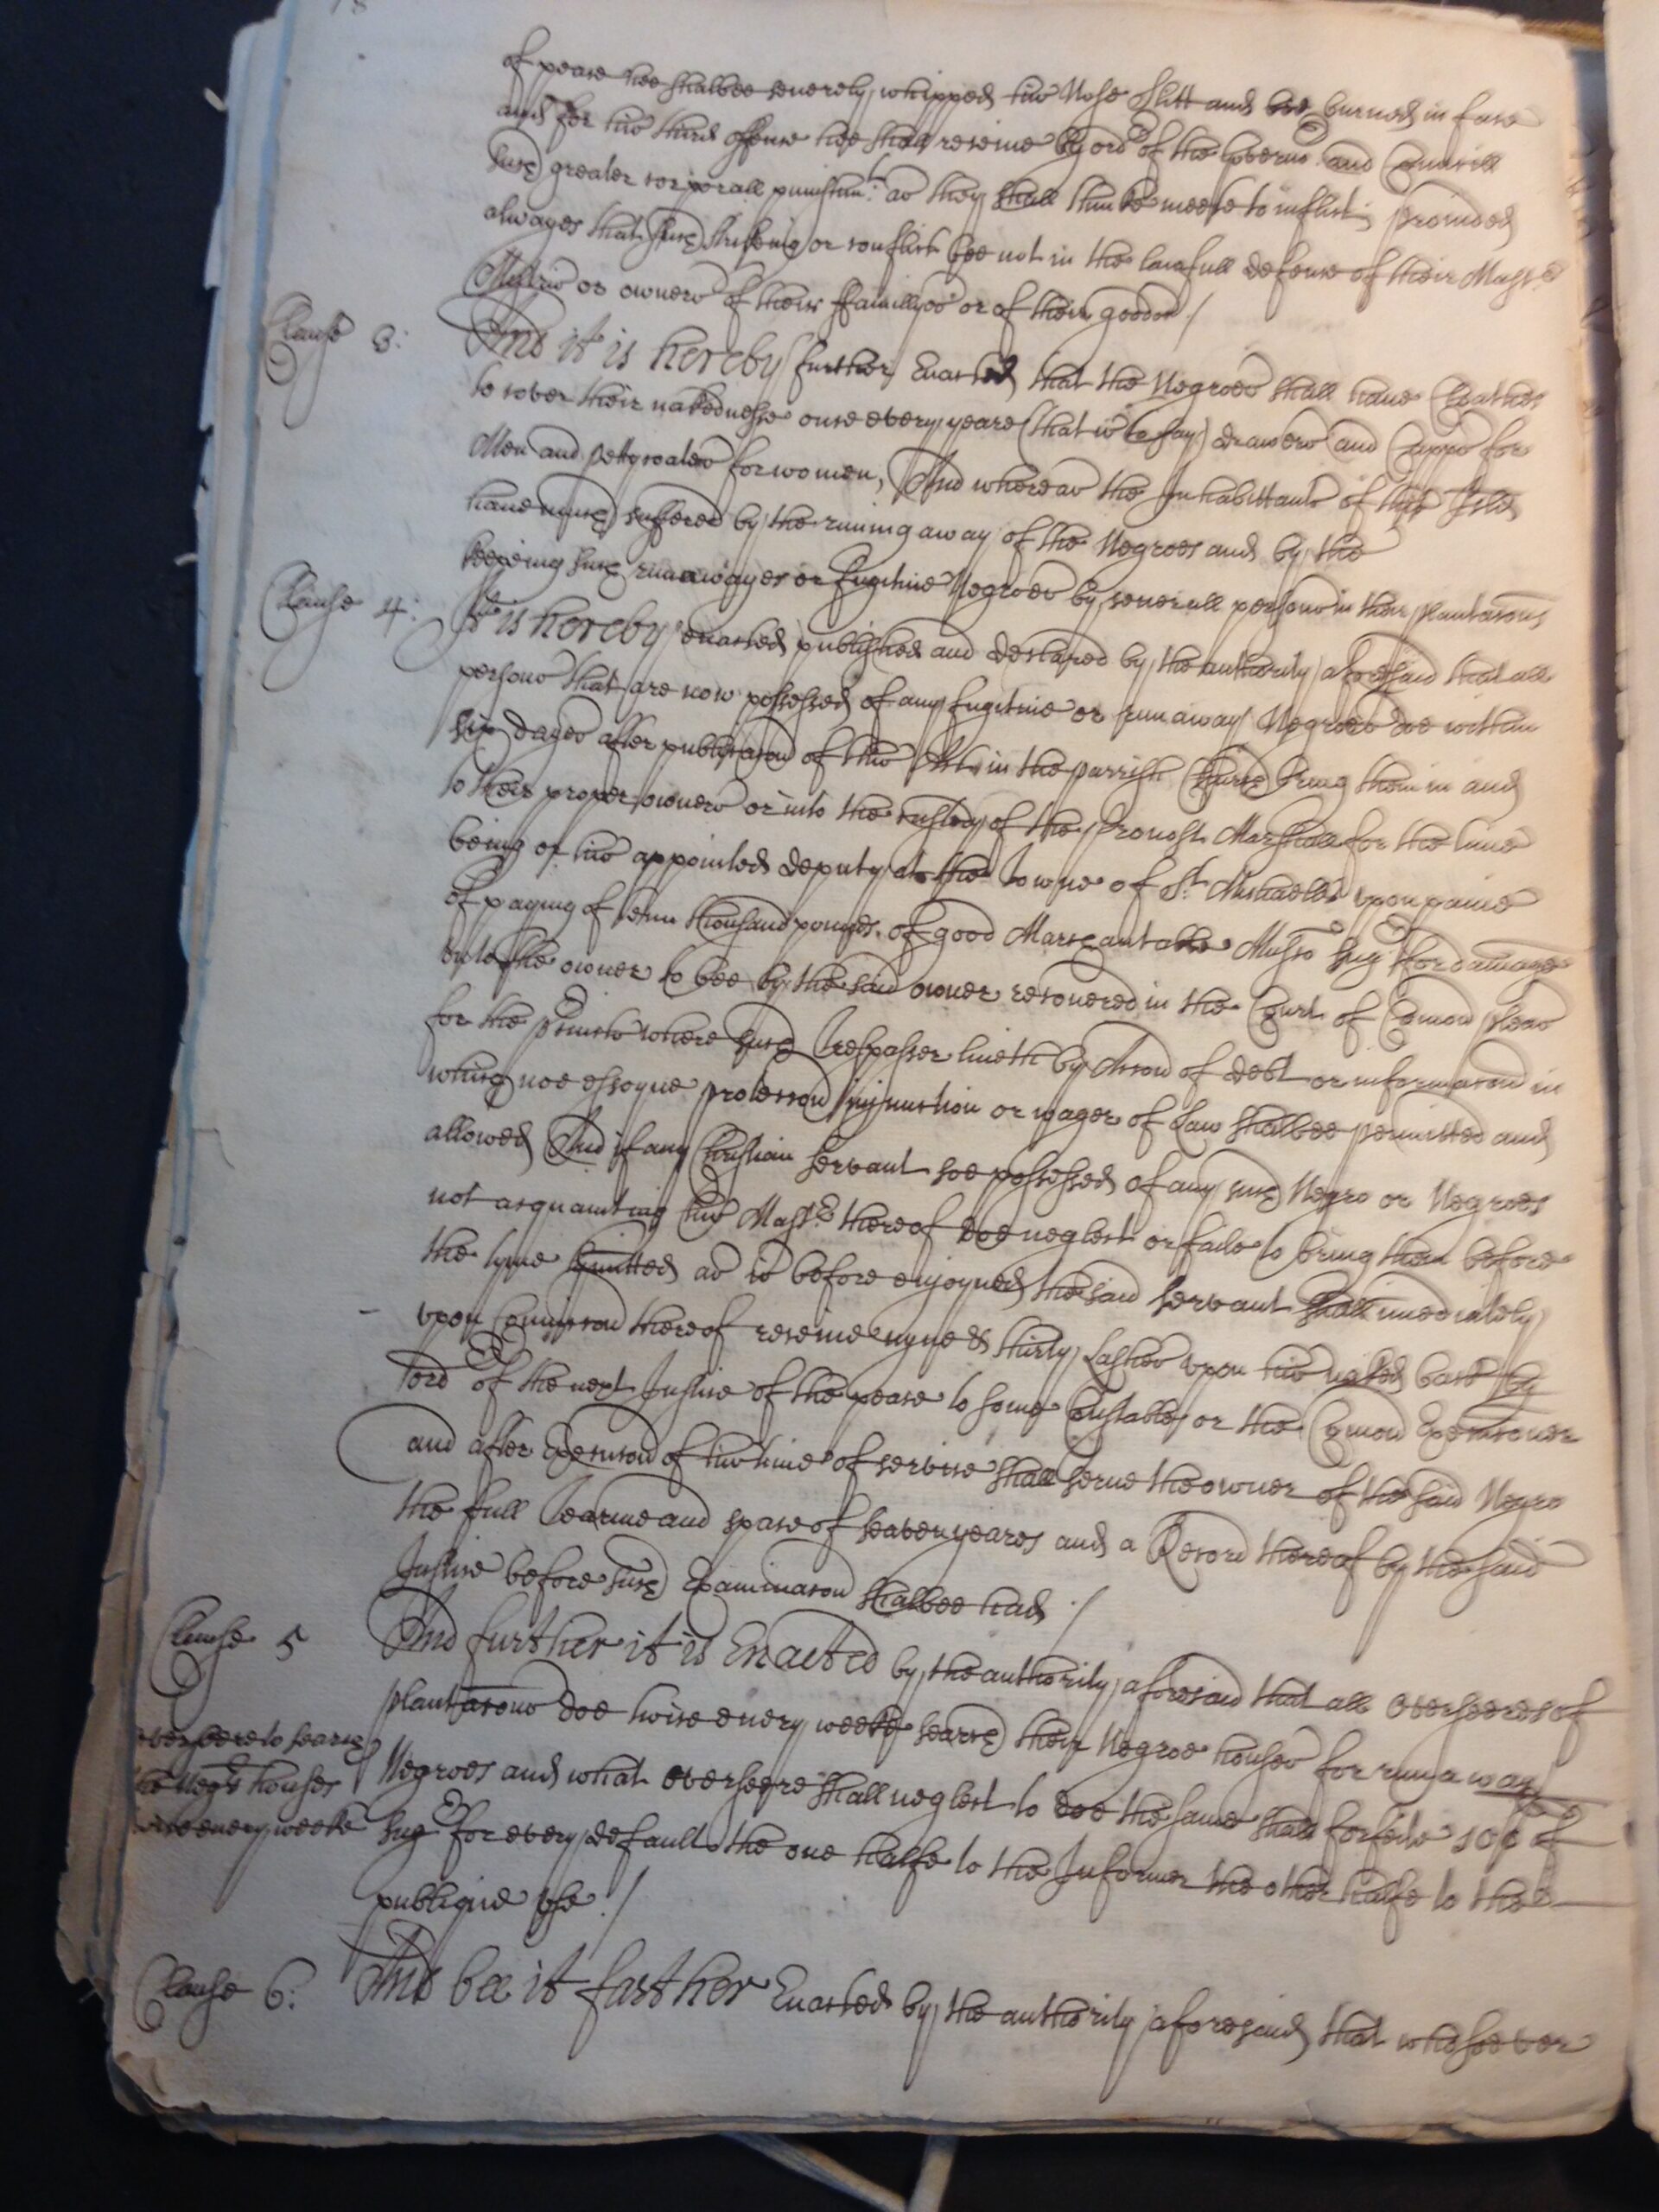 of peace hee shalbee severely whipped his Nose slitt and bee burned in face
and for his third offence hee shall receive by ordr of the Governor and Councill
such greater corporall punishmt: as they shall thinke meete to inflict; Provided
alwayes that such striking or conflict bee not in the lawfull defence of their Mastrs
Mistris or owners of their ffamillyes or of their goodes /
Clause 3: And it is hereby further Enacted that the Negroes shall have Cloathes
to cover their nakednesse once every yeare (that is to say) drawers and Capps for
Men and Pettycoates for women, And whereas the Inhabittants of this Isld
have much suffered by the runing away of the Negroes and by the
keeping such runawayes or fugitive Negroes by severall persons in their plantacons
Clause 4: It is hereby enacted published and declared by the authority aforesaid that all
persons that are now possessed of any fugitive or runaway Negroes doe within
six dayes after publicacon of this Act in the parrish Church bring them in and
to their proper owners or into the custody of the Provost Marshall for the time
being or his appointed deputy att the Towne of St. Michaells upon paine
of paying of tenn thousand pounds of good Marchantable Musco Sugr ffor damages
unto the owner to bee by the said owner recovered in the Court of Comon pleas
for the Precincts where such Trespasser liveth by Accon of debt or informacon in
which noe essoyne proteccon injunction or wager of Law shalbee permitted and
allowed And if any Christian servant soe possessed of any such Negro or Negroes
not acquainting his Mastr thereof doe neglect or faile to bring them before
the tyme limitted as is before enjoyned the said servant shall imediately
upon Conviccon thereof receive nyne & thirty Lashes upon his naked back by
ordr of the next Justice of the peace to some Constable or the Comon Execucioner
and after Execucon of his time of service shall serve the owner of the said Negro
the full Tearme and space of seaven yeares and a Record thereof by the said
Justice before such Examinacon shalbee had /
Clause 5 And further it is Enacted by the authority aforesaid that all overseeres of
plantacons doe twice every weeke search their Negroe houses for runaway
oversere to search
the Negrs houses
twice every weeke
Negroes and what overseere shall neglect to doe the same shall forfeite 100l of
Sugr for every default the one halfe to the Informer the other halfe to the
publique use. /
Clause 6: And bee it farther Enacted by the authority aforesaid that whosoever